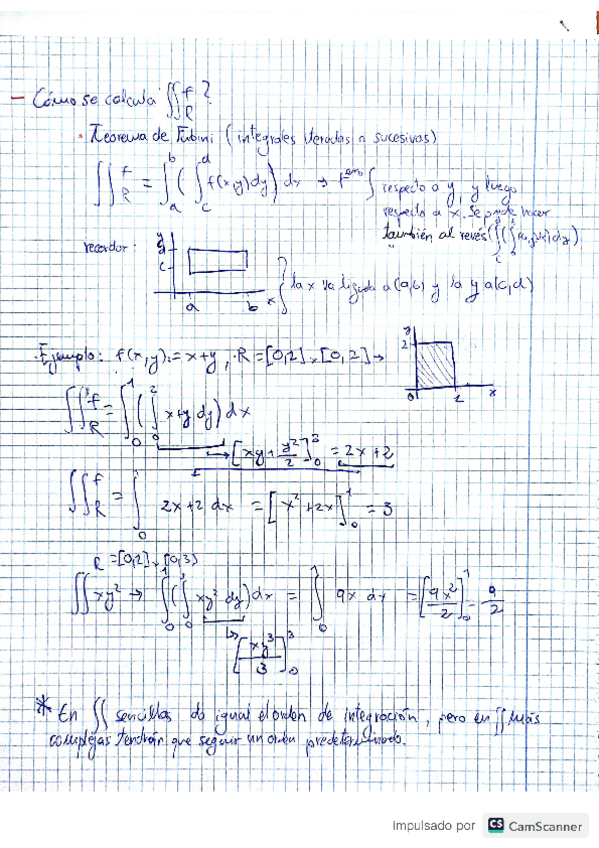 - Cómo se calcula ∬_R f?
• Teorema de Fubini (integrales iteradas o sucesivas)
∬_R f = ∫_a^b (∫_c^d f(x,y)dy) dx → 1ero ∫ respecto a y, y luego
respecto a x. Se puede hacer
también al revés
recordar:
y
d
c
a b x
la x va ligada a (a,b) y la y a (c,d)
Ejemplo: f(x,y) = x+y, R=[0,1]x[0,2] →
y
2
0 1 x
∬_R f = ∫_0^1 (∫_0^2 x+y dy) dx
→ [xy + y²/2]_0^2 = 2x+2
∬_R f = ∫_0^1 2x+2 dx = [x²+2x]_0^1 = 3
R=[0,1]x[0,3]
∬ xy² → ∫_0^1 (∫_0^3 xy² dy) dx = ∫_0^1 9x dx = [9x²/2]_0^1 = 9/2
↳ [xy³/3]_0^3
* En ∬ sencillas da igual el orden de integración, pero en ∬ más
complejas tendrán que seguir un orden predeterminado.
Impulsado por CS CamScanner